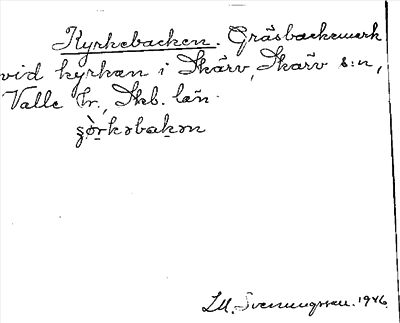 Kyrkebacken. Gräsbackemark
vid kyrkan i Skärv, Skärv s:n,
Valle hr., Skb. län.
ʂö̀rkəbakən
LM. Svenungsson. 1946.